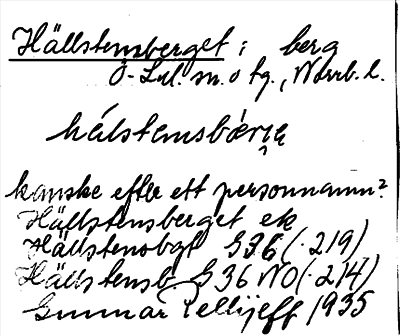 Hällstensberget; berg
Ö-Lul. sn. o tg., Norrb. l.
hálstensbærjə
kanske efter ett personnamn?
Hällstensberget ek
Hällstensbgt G36 (· 219)
Hällstensb G36 NO (· 214)
Gunnar Pellijeff 1935